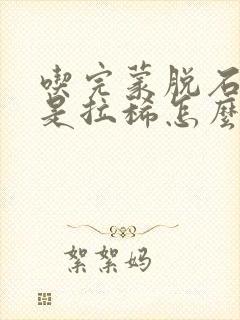 喫完蒙脱石
是拉稀怎麼
絮絮妈